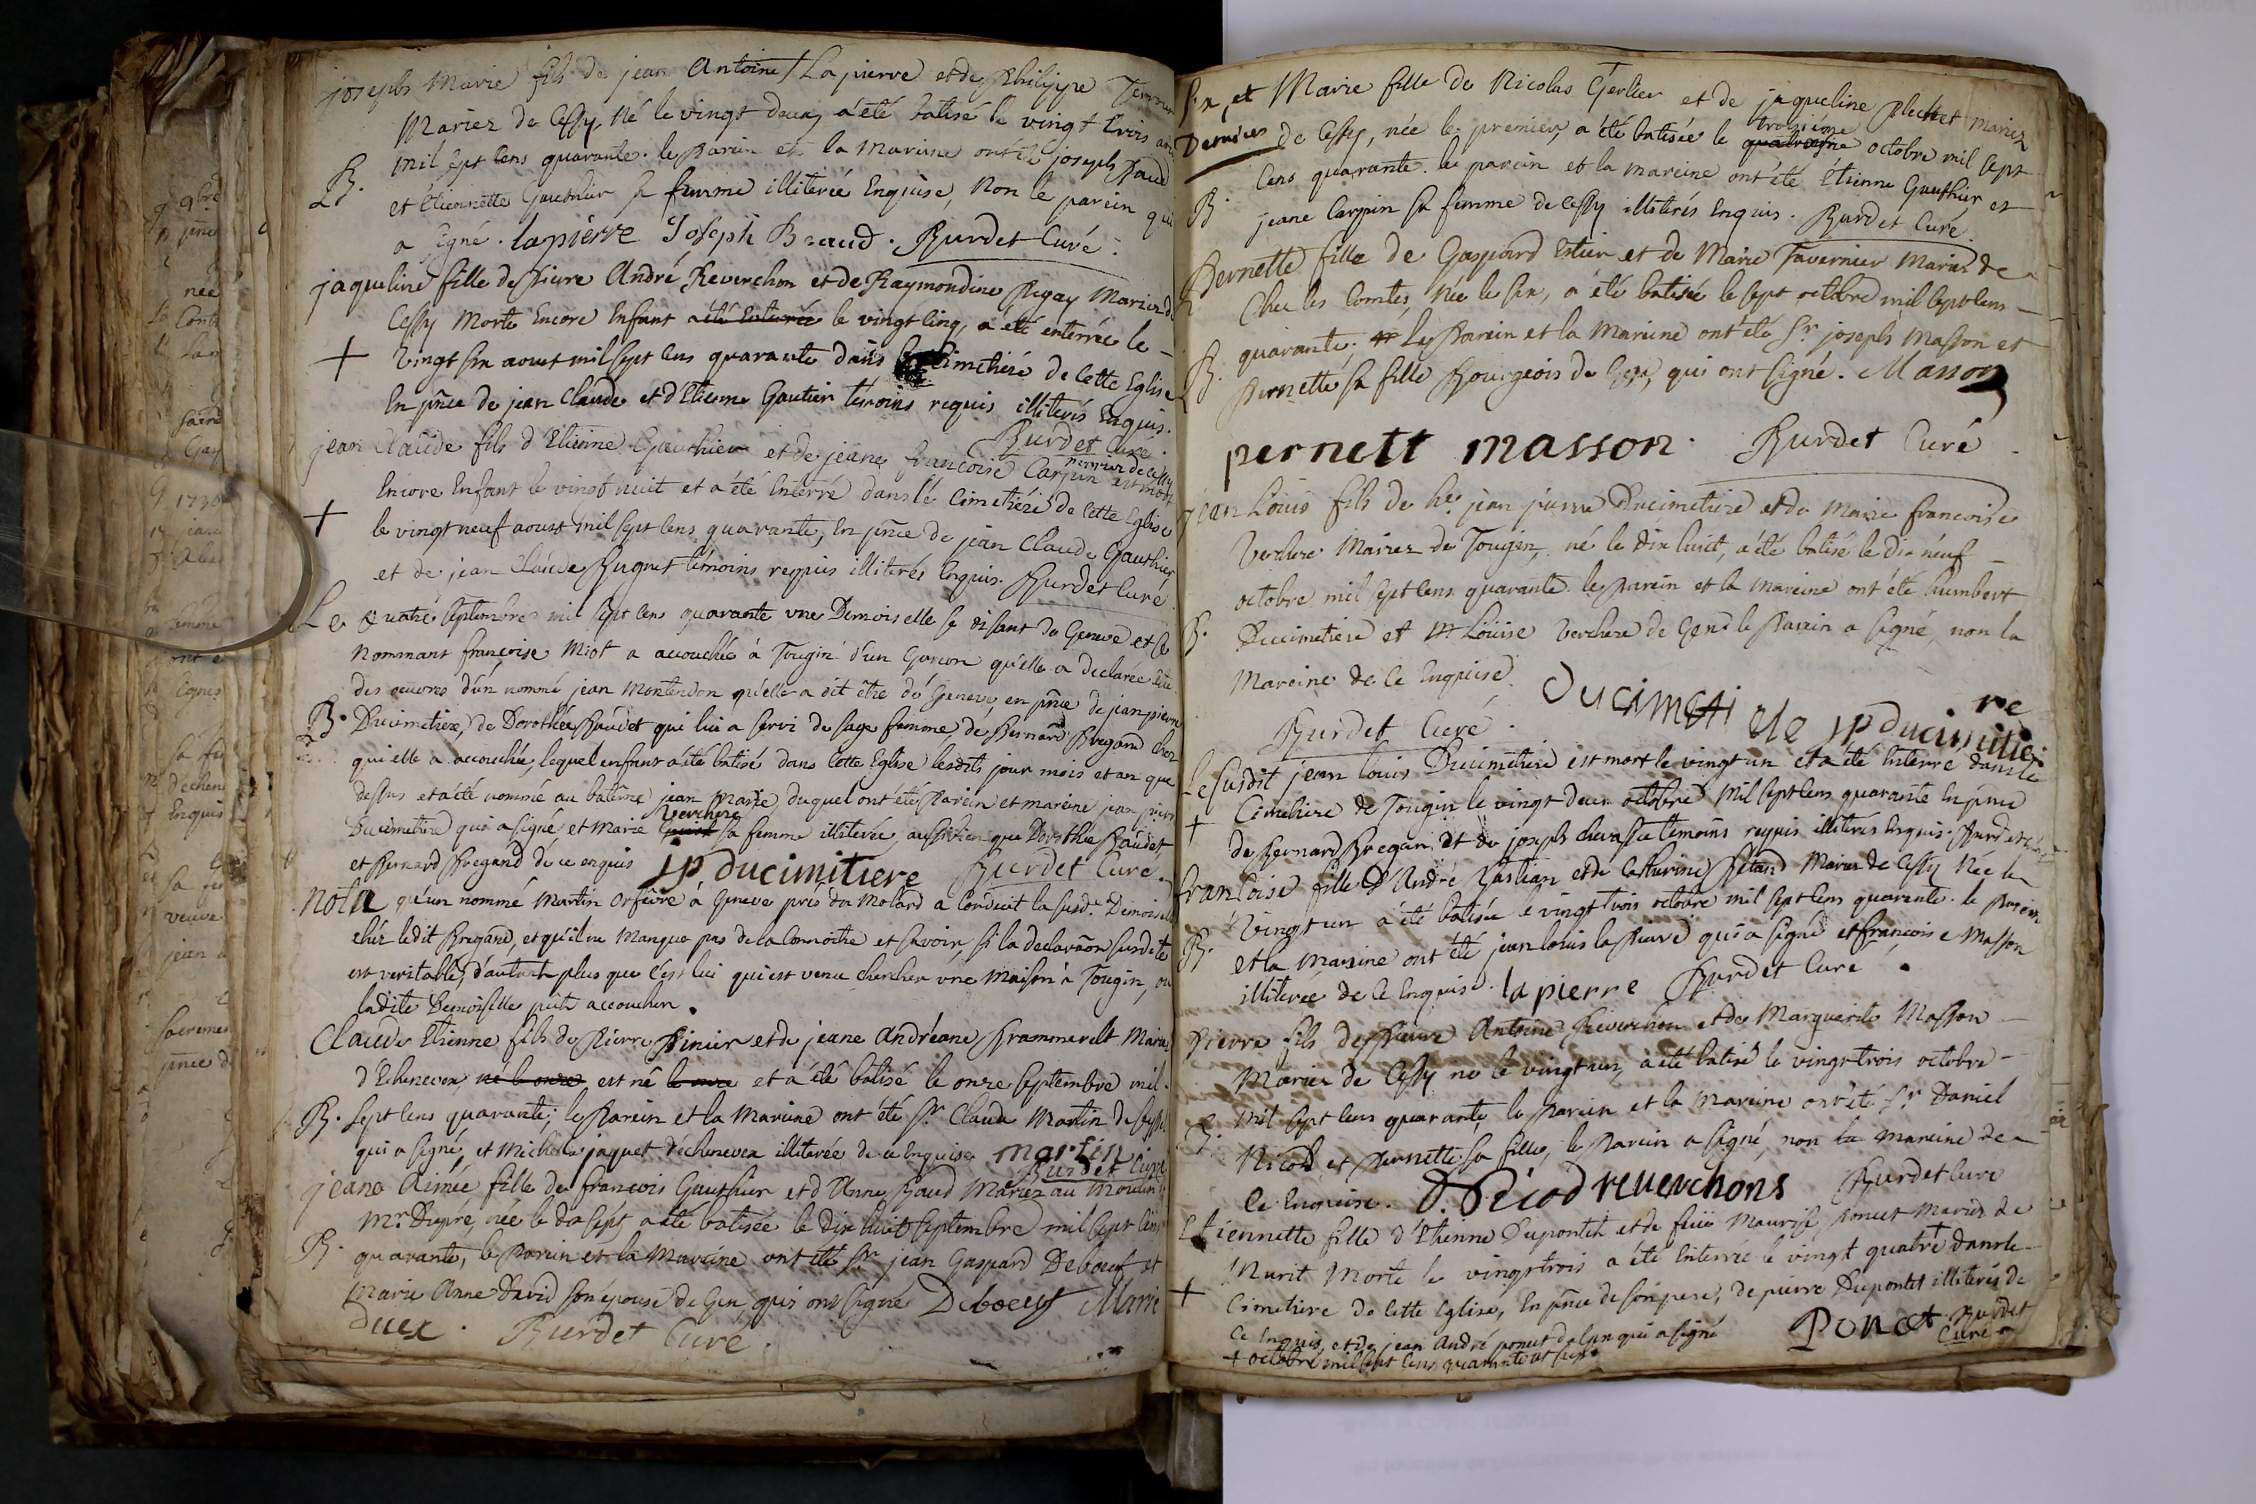 joseph Marie fils de jean Antoine La pierre et de Philippe
Mariez de Cessy, Né le vingt deux, a été batisé le vingt trois
mil sept cens quarante. le Parein et la Mareine ont été joseph
B. et Etiennette Gauthier sa femme illiterée Enquise, Non le parein qui
a signé. lapierre Joseph Braud. Burdet Curé.
jaqueline fille de Pierre André Reverchon et de Raymondine Regay Mariez de
Cessy Morte Encore Enfant a été Enterrée le vingt cinq, a été enterrée le
+ vingt six aoust mil sept cens quarante dans le Cimetière de cette Eglise
En pñce de jean Claude et d'Etienne Gautier témoins requis illiterés Enquis.
Burdet Curé.
jean Claude fils d'Etienne Gauthier et de jeane francoise Carpin de Cessy est mort
Encore Enfant le vingt huit et a été Enterré dans le Cimetière de cette Eglise
+ le vingt neuf aoust mil sept cens quarante, En pñce de jean Claude Gauthier
et de jean Claude Buguet témoins requis illiterés Enquis. Burdet Curé
Le quatre septembre mil sept cens quarante une Demoiselle se disant de Geneve et se
Nommant françoise Miot a accouchée à Tougin d'un Garçon qu'elle a declarée être
des oeuvres d'un nommé jean Montendon qu'elle a dit être de Geneve, en pñce de jean pierre
B. Ducimetiere, de Dorothée Baudet qui lui a servi de sage femme de Bernard Bregand chez
qui elle a accouchée, lequel enfant a été batisé dans cette Eglise lesdits jour mois et an que
dessus et a été nommé au batême jean Marie, duquel ont été Parein et mareine jean pierre
Verchere
Ducimetiere qui a signé et Marie sa femme illiterée, aussi bien que Dorothée Baudet
et Bernard Bregand de ce enquis jp ducimitiere Burdet Curé.
Nota qu'un nommé Martin orfèvre à Geneve près du Molard a conduit la susd.e Demoiselle
chez ledit Bregand, et qu'il ne Manque pas de la Connoitre et savoir, si la declarãon susdite
est veritable, d'autant plus que c'est lui qui est venu chercher une Maison à Tougin, ou
ladite Demoiselle pût accoucher.
Claude Etienne fils de Pierre Pinier et de jeane Andréane Prammerelt Mariez
d'Echenevex, né le onze, est né le onze et a été batisé le onze septembre mil
B. sept cens quarante; le Parein et la Mareine ont été Sr. Claude Martin de Cessy
qui a signé, et Michelle jaquet d'echenevex illiterée de ce enquise martin
Burdet Curé
jeane Aimée fille de françois Gauthier et d'Anne Baud Mariez au Moulin de
Mr. Dupré, née le dix sept, a été batisée le dix huit septembre mil sept cens
B. quarante, le Parein et la Mareine ont été Sr. jean Gaspard Deboeuf et
Marie Anne David son épouse de Gex, qui ont signé Deboeuf Marie
Burdet Curé.
Marie fille de Nicolas Gerlier et de jaqueline Plechet mariez
troisième
de Cessy, née le premier, a été batisée le quatrième octobre mil sept
cens quarante. le parein et la mareine ont été Etienne Gauthier et
B. jeane Carpin sa femme de Cessy illiterés Enquis. Burdet Curé.
Pernette fille de Gaspard Estier et de Marie Tavernier Mariez de
Chez les Comtes, Née le six, a été batisée le sept octobre mil sept cens
quarante. Le Parein et la Mareine ont été Sr. joseph Masson et
B. Pernette sa fille Bourgeois de Gex, qui ont signé. Masson
pernett masson. Burdet Curé.
jean Louis fils de he. jean pierre Ducimetiere et de Marie francoise
Verchere Mariez de Tougin, né le dix huict, a été batisé le dix neuf
octobre mil sept cens quarante. le parein et la mareine ont été humbert
B. Ducimetiere et Louise Verchere de Gex le Parein a signé, non la
Mareine de ce Enquise.
Burdet Curé. jp ducimitier
Le susdit jean Louis Ducimetière est mort le vingt un et a été Enterré dans le
+ Cimetiere de Tougin le vingt deux octobre mil sept cens quarante En pñce
de Bernard Bregan, et de joseph chevassu témoins requis illiterés Enquis. Burdet
francoise fille d'André Bastian et de Catherine Petand Mariez de Cessy Née le
vingt un a été batisée le vingt trois octobre mil sept cens quarante. le Parein
B. et la Mareine ont été jean louis la Pierre qui a signé et françoise Masson
illiterée de ce Enquise. lapierre Burdet Curé
Pierre fils de Pierre Antoine Reverchon et de Marguerite Masson
Mariez de Cessy né le vingt un, a été batisé le vingt trois octobre
B. Mil sept cens quarante, le parein et la Mareine ont été Sr. Daniel
Nicod et Pernette sa fille, le Parein a signé, non la mareine de
ce Enquise. D. Nicod reuerchons Burdet Curé
Etiennette fille d'Etienne Dupontet et de feüe Maurise ponet Mariez de
Murit Morte le vingt trois a été Enterrée le vingt quatre+ dans le
+ Cimetiere de cette Eglise, En pñce de son pere, de pierre Dupontet illiterés de
ce Enquis, et de jean André ponet qui a signé Ponet Burdet
+ octobre mil sept cens quarante Curé